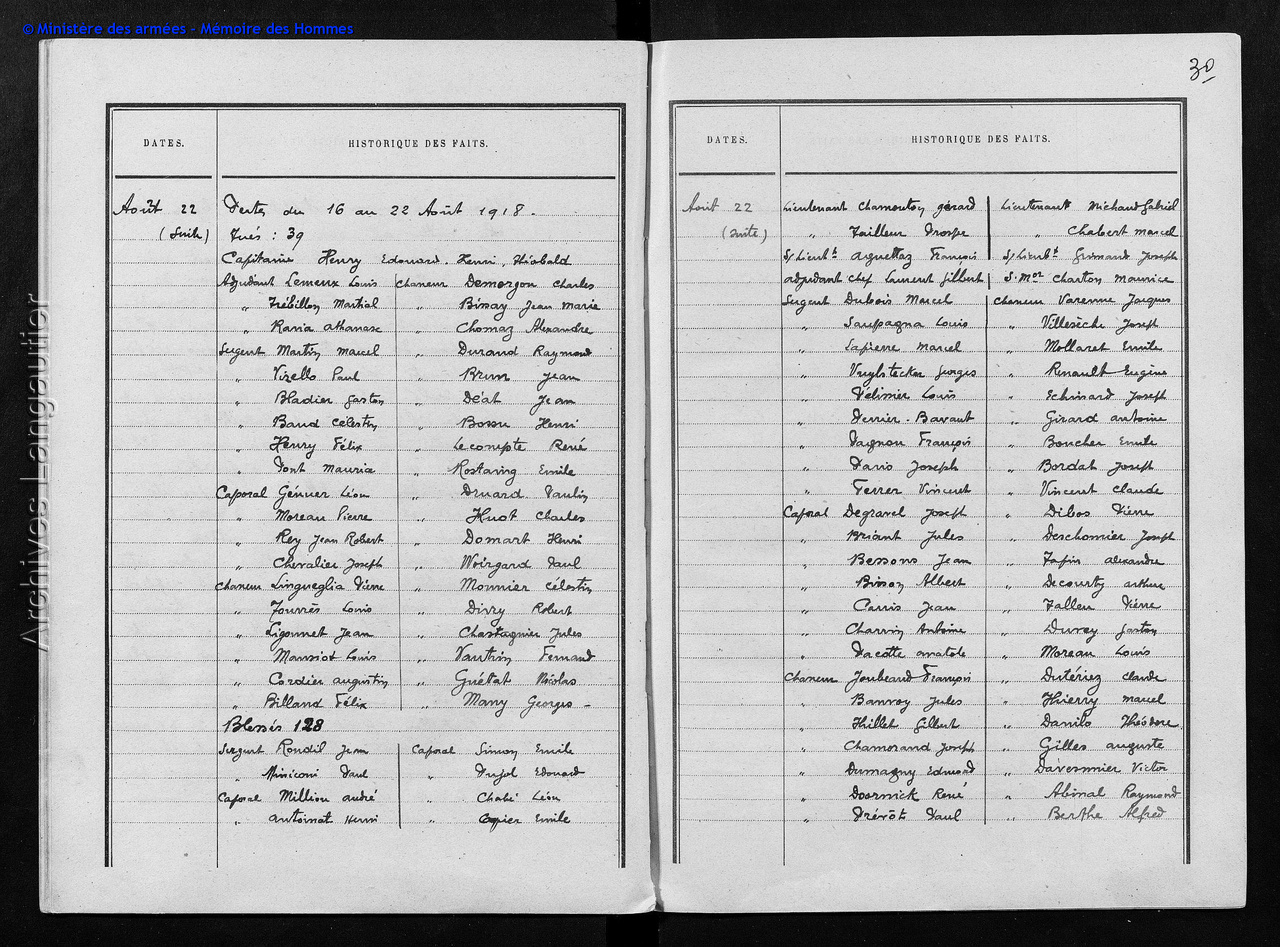 © Ministère des armées - Mémoire des Hommes
30
DATES. HISTORIQUE DES FAITS.
Août 22 Pertes du 16 au 22 Août 1918.
(Suite) Tués : 39
Capitaine Henry Edouard. Henri, Théobald
Adjudant Lemeux Louis Chasseur Demorgon Charles
" Trébillon Martial " Bissay Jean Marie
" Ravia Athanase " Chomaz Alexandre
Sergent Martin Marcel " Durand Raymond
" Virello Paul " Brun Jean
" Bladier Gaston " Déat Jean
" Baud Célestin " Bossu Henri
" Henry Félix " Lecompte René
" Pont Maurice " Rostaing Emile
Caporal Génuer Léon " Druard Paulin
" Moreau Pierre " Huot Charles
" Rey Jean Robert " Domart Henri
" Chevalier Joseph " Woirgard Paul
Chasseur Lingueglia Pierre " Monnier Célestin
" Jourrès Louis " Divry Robert
" Ligonnet Jean " Chastagnier Jules
" Mansiot Louis " Vautrin Fernand
" Cordier Augustin " Guétat Nicolas
" Billand Félix " Many Georges -
Blessés 128
Sergent Rondil Jean Caporal Simon Emile
" Miniconi Paul " Pujol Edouard
Caporal Million André " Chabé Léon
" Antoinat Henri " Copier Emile
DATES. HISTORIQUE DES FAITS.
Août 22 Lieutenant Chamouton Gérard Lieutenant Michaud Gabriel
(Suite) " Tailleur Prospe " Chabert Marcel
S/Lieut<sup>t</sup> Arguettaz François S/Lieut<sup>t</sup> Grimaud Joseph
Adjudant Chef Laurent Gilbert S.Mor Charton Maurice
Sergent Dubois Marcel Chasseur Varenne Jacques
" Saupagna Louis " Villesèche Joseph
" Lapierre Marcel " Mollaret Emile
" Vuylstecker Georges " Renault Eugène
" Pelinier Louis " Echinard Joseph
" Perrier-Bavant " Girard Antoine
" Pagnon François " Boucher Emile
" Davis Joseph " Bordat Joseph
" Ferrer Vincent " Vincent Claude
Caporal Degravel Joseph " Dibos Pierre
" Briant Jules " Deschomier Joseph
" Bessons Jean " Tapin Alexandre
" Binson Albert " Decourty Arthur
" Carris Jean " Falleu Pierre
" Charrin Antoine " Durey Gaston
" Pacotte Anatole " Moreau Louis
Chasseur Joubeaud François " Dutériez Claude
" Banvoy Jules " Thierry Marcel
" Thillet Gilbert " Danilo Théodore
" Chamorand Joseph " Gilles Auguste
" Dumagny Edmond " Davesnnier Victor
" Doornick René " Abinal Raymond
" Prévôt Paul " Berthe Alfred
Archives Langautier